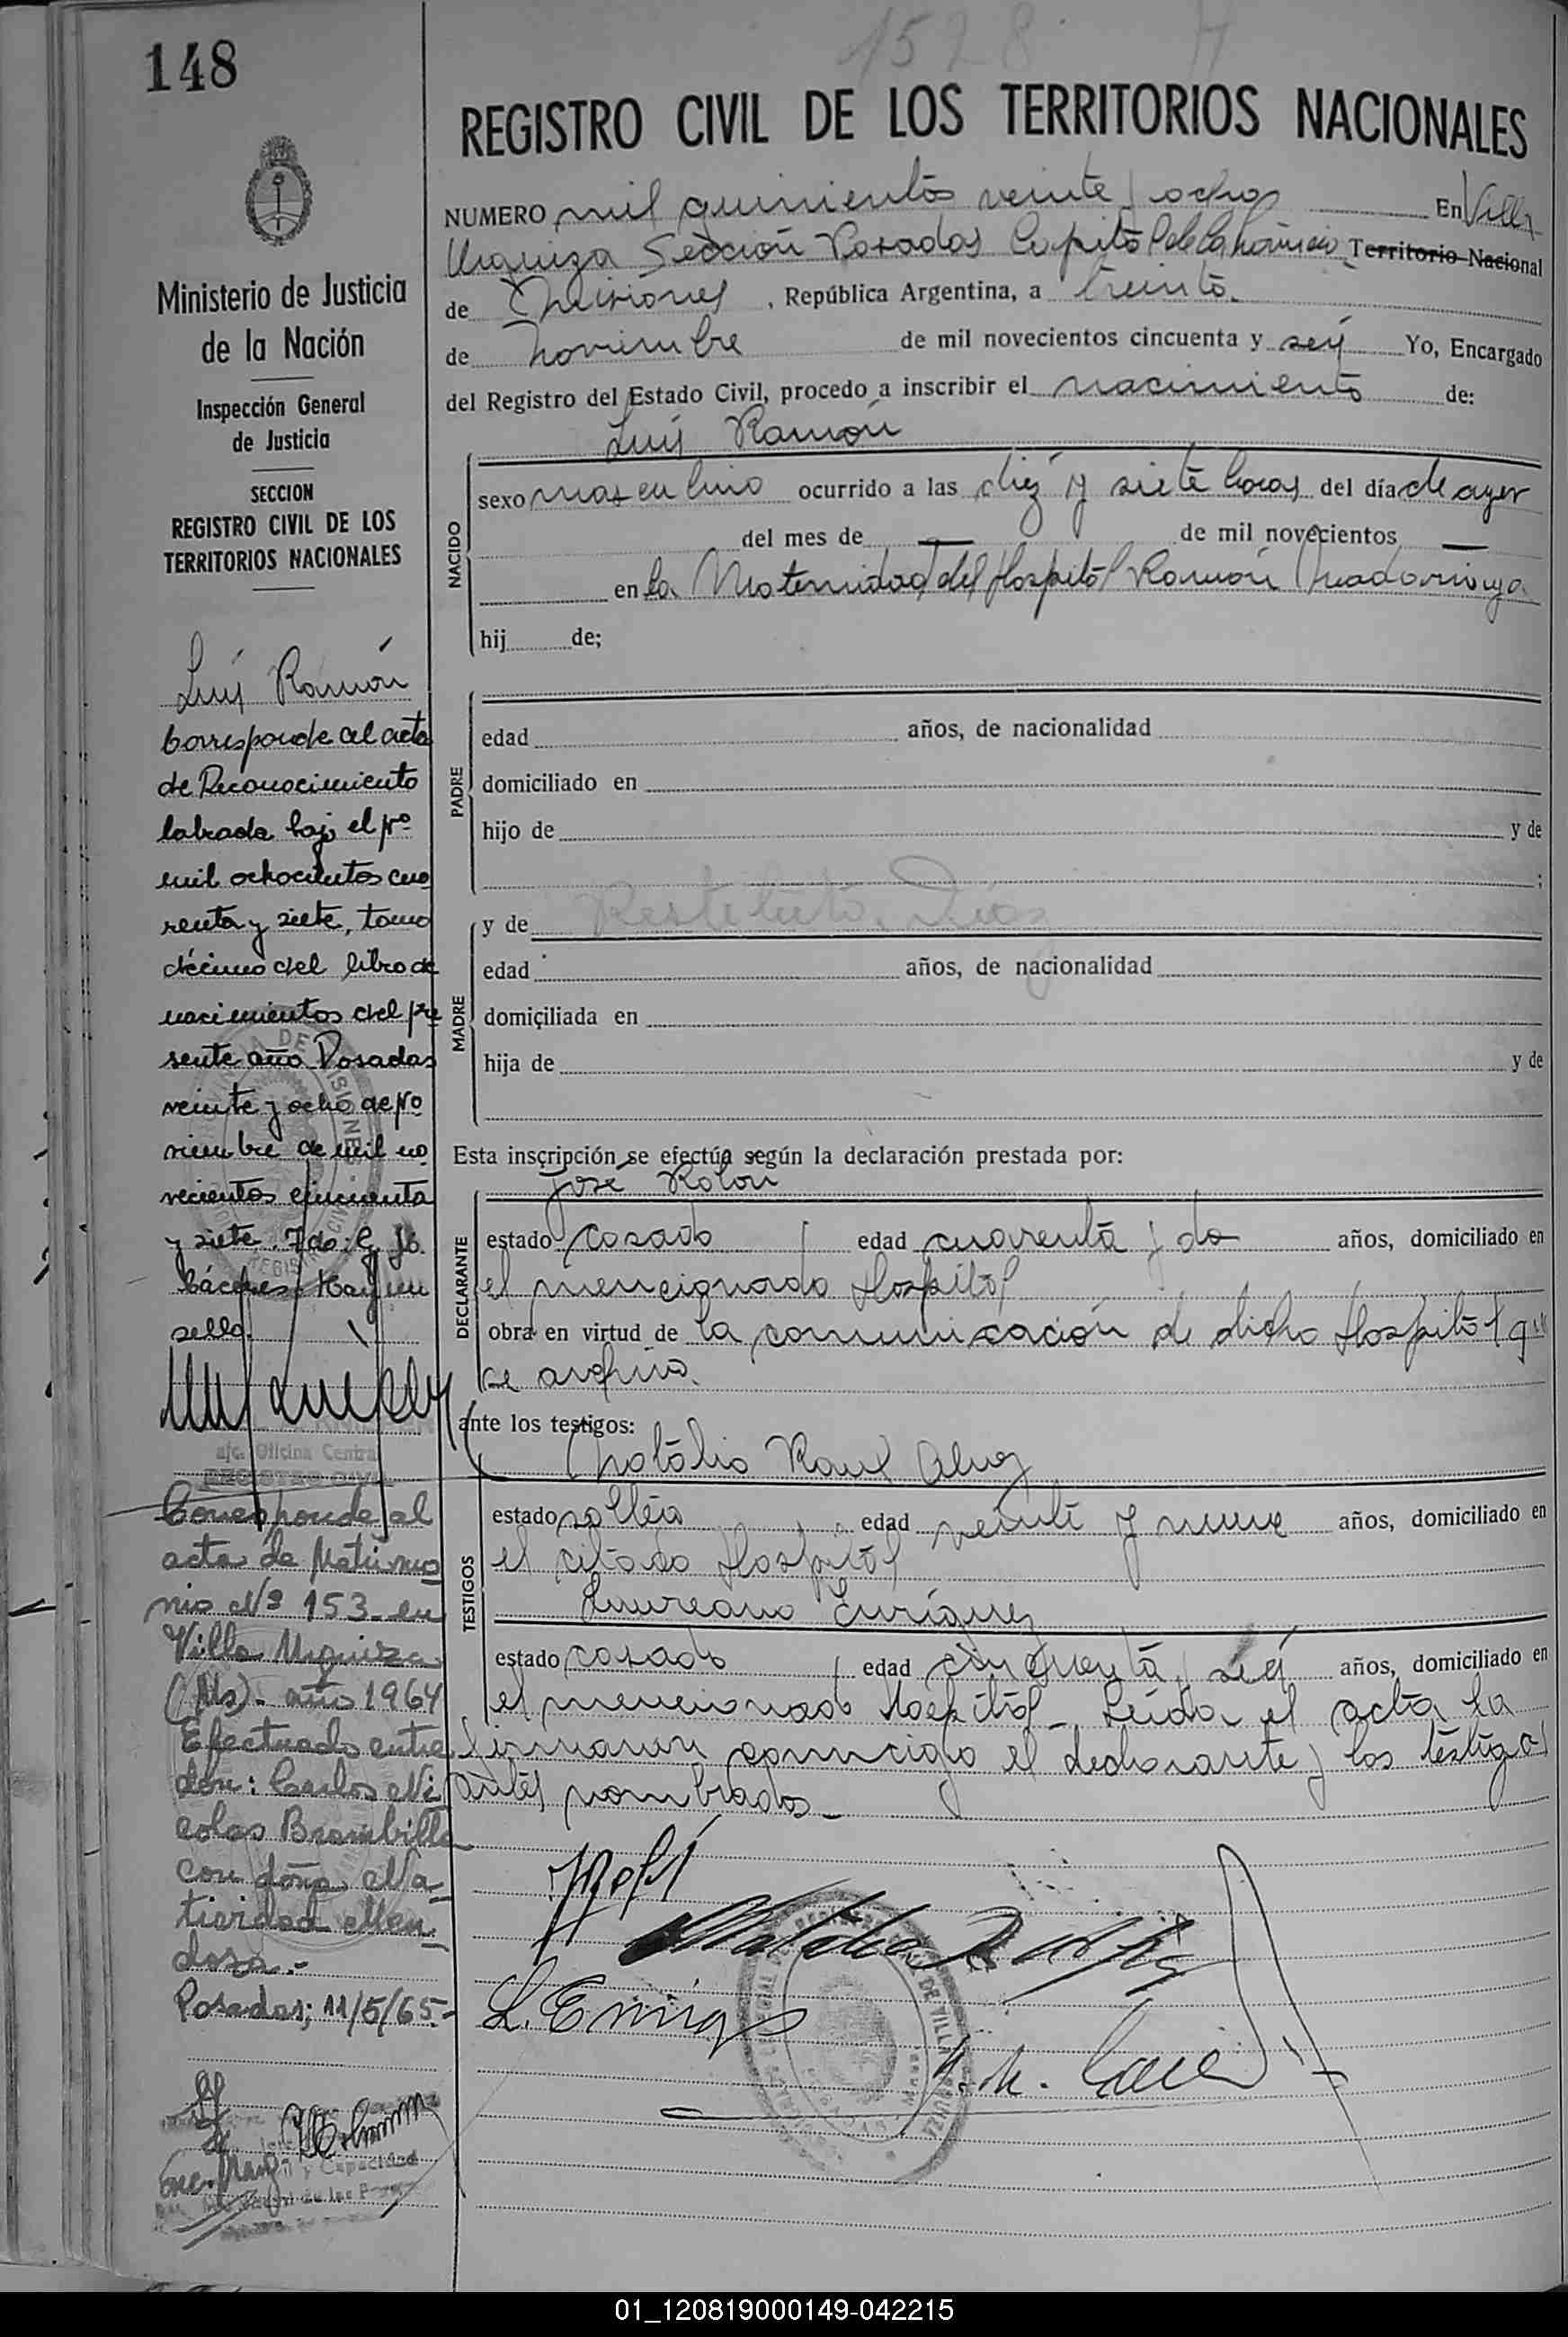 148
1528
REGISTRO CIVIL DE LOS TERRITORIOS NACIONALES
NUMERO mil quinientos veinte y ocho En Villa
Urquiza Sección Posadas Capital de la Provincia Territorio Nacional
de Misiones, República Argentina, a treinta
de Noviembre de mil novecientos cincuenta y seis Yo, Encargado
del Registro del Estado Civil, procedo a inscribir el nacimiento de:
Luis Ramón
NACIDO
sexo masculino ocurrido a las diez y siete horas del día de ayer
del mes de — de mil novecientos —
en la Maternidad del Hospital Ramón Madariaga
hij de;
PADRE
edad años, de nacionalidad
domiciliado en
hijo de y de
;
MADRE
y de Restituta Díaz
edad años, de nacionalidad
domiciliada en
hija de y de
Esta inscripción se efectúa según la declaración prestada por:
José Rolon
DECLARANTE
estado casado edad cuarenta y dos años, domiciliado en
el mencionado Hospital
obra en virtud de la comunicación de dicho Hospital que
se archiva.
ante los testigos:
Natalio Raul
TESTIGOS
estado soltero edad veinte y nueve años, domiciliado en
el citado Hospital
Laureano Enriquez
estado casado edad cincuenta y seis años, domiciliado en
el mencionado Hospital_ Leida el acta la
firmaron conmigo el declarante y los testigos
antes nombrados_
L. Enriquez
Ministerio de Justicia
de la Nación
Inspección General
de Justicia
SECCION
REGISTRO CIVIL DE LOS
TERRITORIOS NACIONALES
Luis Ramón
Corresponde al acta
de Reconocimiento
labrada bajo el Nº
mil ochocientos cua
renta y siete, tomo
décimo del libro de
nacimientos del pre
sente año Posadas
veinte y ocho de No
viembre de mil no
vecientos cincuenta
y siete. Fdo: G. Jb.
Cáceres. Hay un
sello.
a/c. Oficina Central
REGISTRO CIVIL
Corresponde al
acta de Matrimo
nio Nº 153 - en
Villa Urquiza
(Ms). año 1964
Efectuado entre
don: Carlos Ni
colas Brambilla
con doña Na-
tividad Men-
doza.-
Posadas; 11/5/65.-
01_120819000149-042215